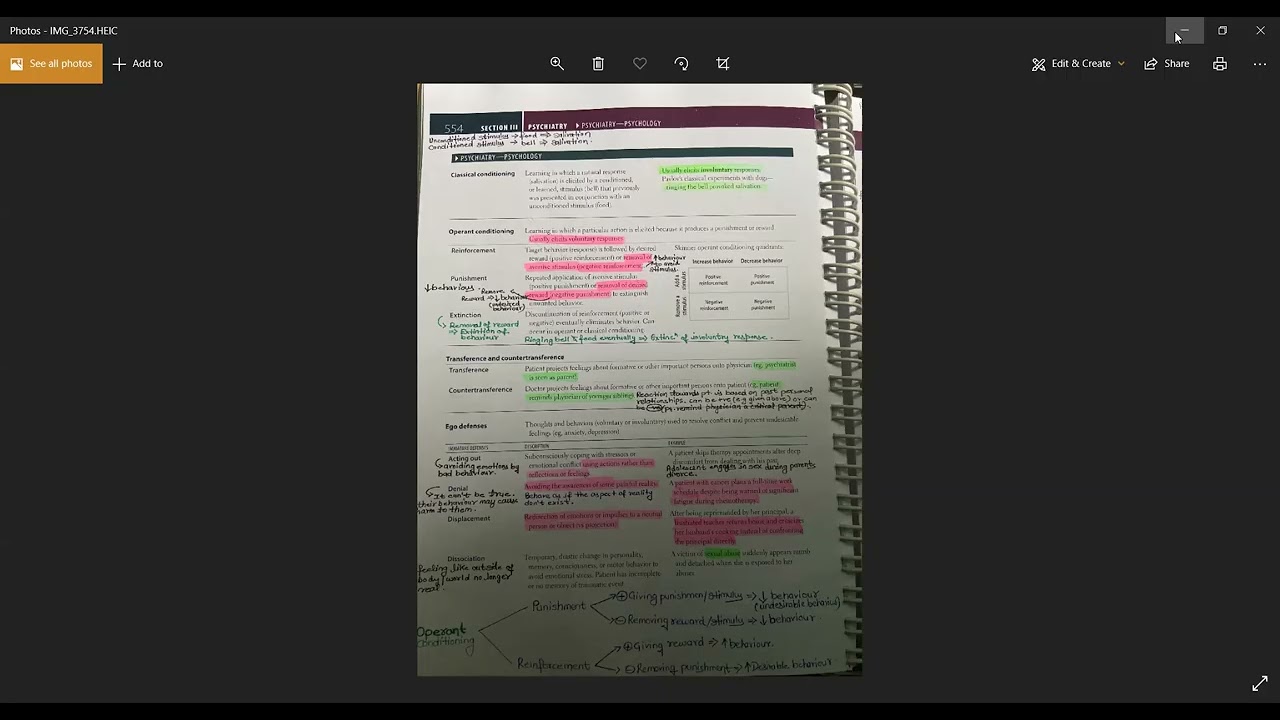 Photos - IMG_3754.HEIC
See all photos
Add to
Edit & Create
Share
554 SECTION III PSYCHIATRY ▶ PSYCHIATRY—PSYCHOLOGY
Unconditioned stimulus → food ⇒ salivation
Conditioned stimulus → bell ⇒ salivation.
▶ PSYCHIATRY—PSYCHOLOGY
Classical conditioning
Learning in which a natural response
(salivation) is elicited by a conditioned,
or learned, stimulus (bell) that previously
was presented in conjunction with an
unconditioned stimulus (food).
Usually elicits involuntary responses.
Pavlov's classical experiments with dogs—
ringing the bell provoked salivation.
Operant conditioning
Learning in which a particular action is elicited because it produces a punishment or reward.
Usually elicits voluntary responses.
Reinforcement
Target behavior (response) is followed by desired
reward (positive reinforcement) or removal of
aversive stimulus (negative reinforcement).
↑behaviour
to avoid
stimulus.
Skinner operant conditioning quadrants:
Increase behavior Decrease behavior
Add a stimulus
Positive reinforcement
Positive punishment
Remove a stimulus
Negative reinforcement
Negative punishment
Punishment
↓behaviours.
Remove
Reward ⇒ ↓ behaviour
Repeated application of aversive stimulus
(positive punishment) or removal of desired
reward (negative punishment) to extinguish
unwanted behavior.
Extinction
Removal of reward
⇒ Extinction of
behaviour
Discontinuation of reinforcement (positive or
negative) eventually eliminates behavior. Can
occur in operant or classical conditioning.
Ringing bell food eventually ⇒ Extincⁿ of involuntry response.
Transference and countertransference
Transference
Patient projects feelings about formative or other important persons onto physician (eg, psychiatrist
is seen as parent).
Countertransference
Doctor projects feelings about formative or other important persons onto patient (eg, patient
reminds physician of younger sibling).
Reaction towards pt is based on past personal
relationships, can be +ve (e.g given above) or can
be -ve (pt. remind physician a critical parent).
Ego defenses
Thoughts and behaviors (voluntary or involuntary) used to resolve conflict and prevent undesirable
feelings (eg, anxiety, depression).
IMMATURE DEFENSES DESCRIPTION EXAMPLE
Acting out
avoiding emotions by
bad behaviour.
Subconsciously coping with stressors or
emotional conflict using actions rather than
reflections or feelings.
A patient skips therapy appointments after deep
discomfort from dealing with his past.
Adolescent engages in sex during parents
divorce.
Denial
It can't be true.
their behaviour may cause
harm to them.
Avoiding the awareness of some painful reality.
Behave as if the aspect of reality
don't exist.
A patient with cancer plans a full-time work
schedule despite being warned of significant
fatigue during chemotherapy.
Displacement
Redirection of emotions or impulses to a neutral
person or object (vs projection).
After being reprimanded by her principal, a
frustrated teacher returns home and criticizes
her husband's cooking instead of confronting
the principal directly.
Dissociation
feeling like outside of
body/world no longer
real.
Temporary, drastic change in personality,
memory, consciousness, or motor behavior to
avoid emotional stress. Patient has incomplete
or no memory of traumatic event.
A victim of sexual abuse suddenly appears numb
and detached when she is exposed to her
abuser.
Operant
conditioning
Punishment
⊕ Giving punishment/stimulus ⇒ ↓ behaviour
(undesirable behaviour)
⊖ Removing reward/stimulus ⇒ ↓ behaviour
Reinforcement
⊕ Giving reward ⇒ ↑ behaviour.
⊖ Removing punishment ⇒ ↑ Desirable behaviour